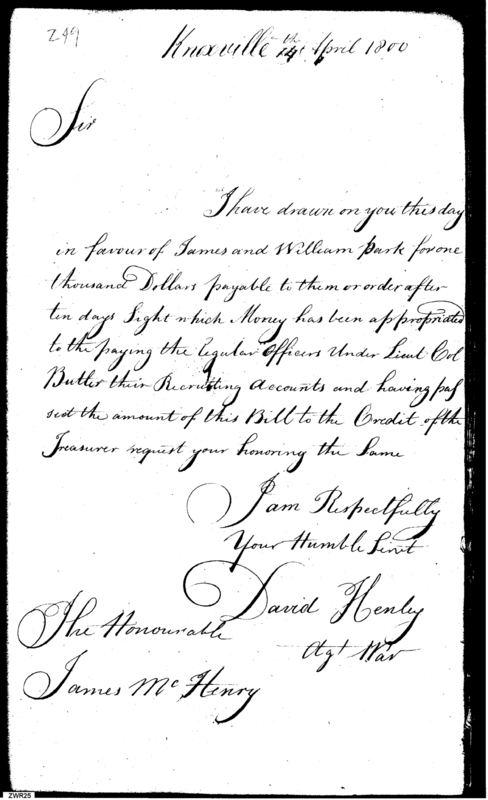 249
Knoxville 14th April 1800
Sir
I have drawn on you this day
in favour of James and William Park for one
thousand Dollars payable to them or order after
ten days Sight which Money has been appropriated
to the paying the regular Officers Under Lieut Col
Butler their Recruiting accounts and having pas
sed the amount of this Bill to the Credit of the
Treasurer request your honoring the Same
I am Respectfully
Your Humble Servt
David Henley
Agt War
The Honourable
James McHenry
ZWR25